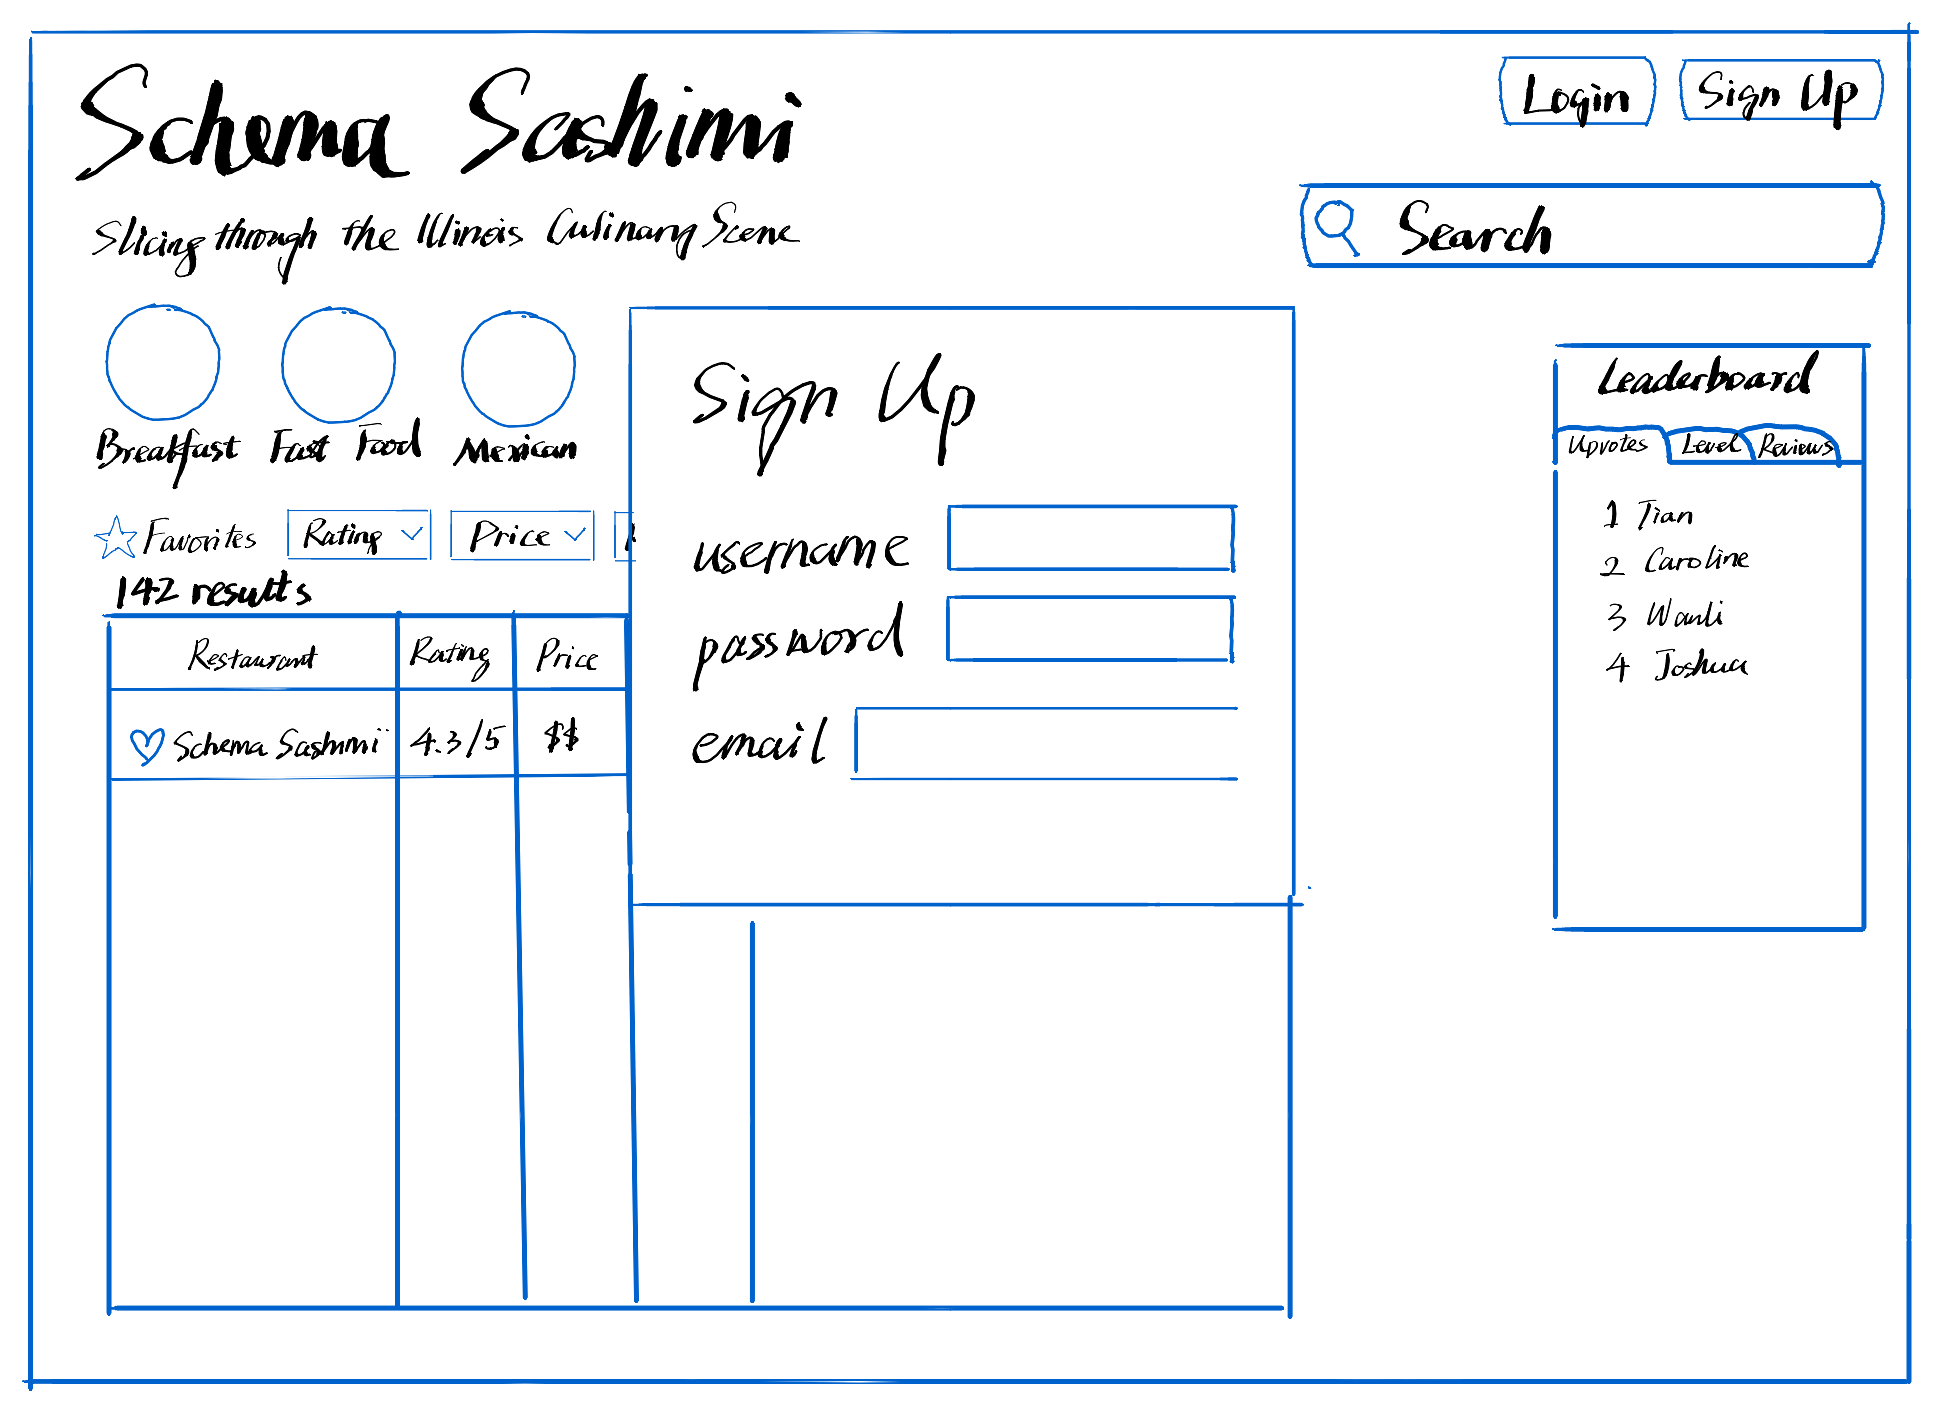 Schema Sashimi
Login
Sign Up
Slicing through the Illinois Culinary Scene
Search
Breakfast
Fast Food
Mexican
Favorites
Rating
Price
142 results
Restaurant
Rating
Price
Schema Sashimi
4.3/5
$$
Sign Up
username
password
email
Leaderboard
Upvotes
Level
Reviews
1 Tian
2 Caroline
3 Wanli
4 Joshua